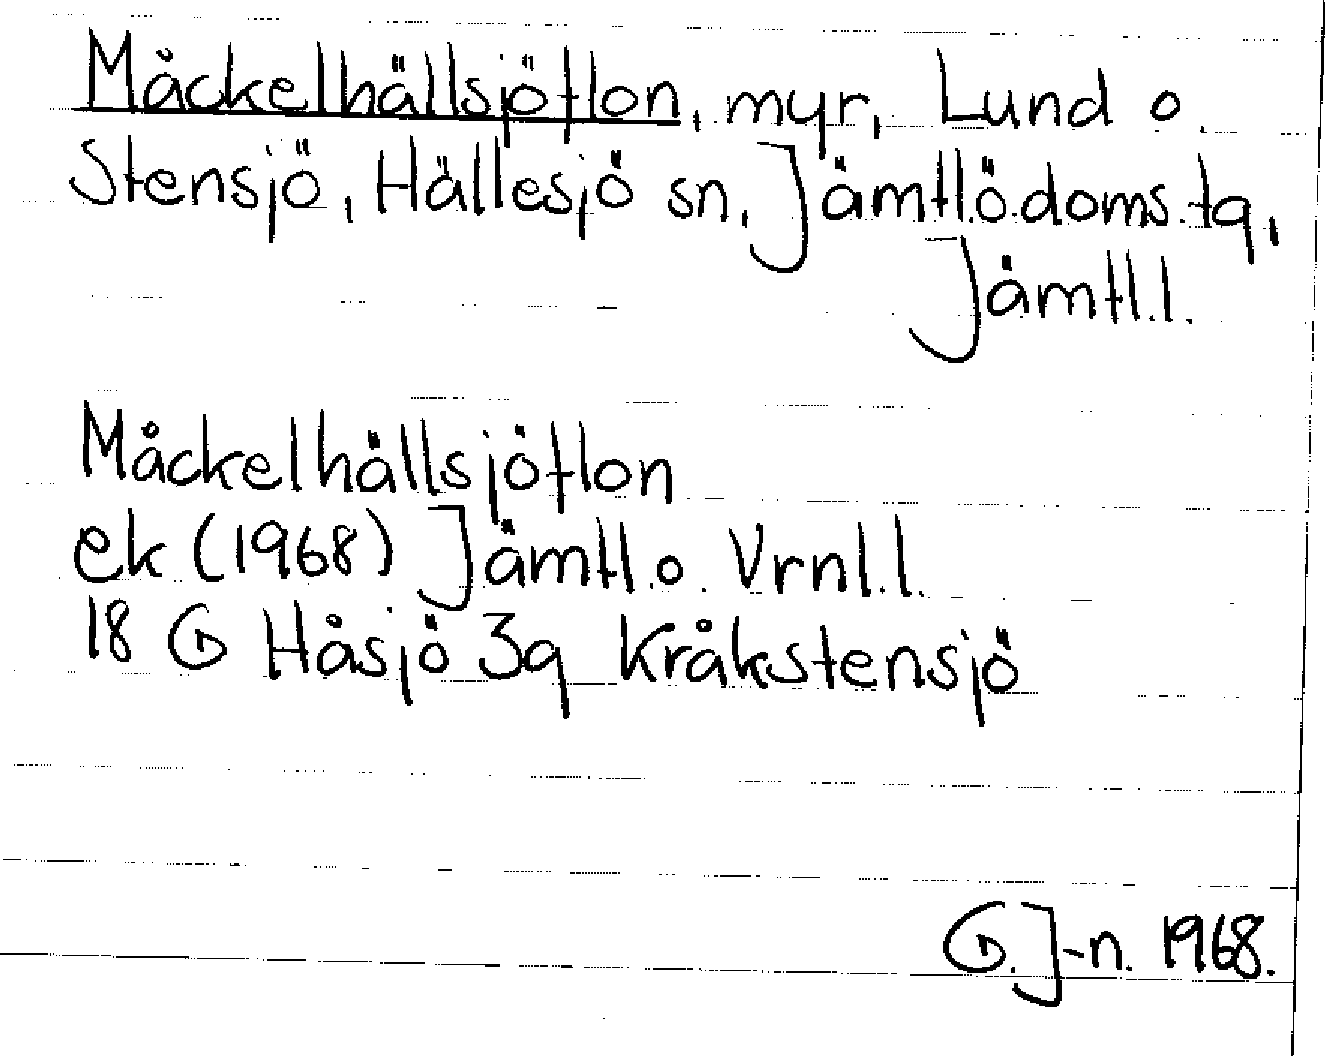 Måckelhällsjöflon, myr, Lund o
Stensjö, Hällesjö sn, Jämtl.ö.doms.tg,
Jämtl.l.
Måckelhällsjöflon
ek (1968) Jämtl.o. Vrnl.l.
18 G Håsjö 3g Kråkstensjö
G.J-n. 1968.